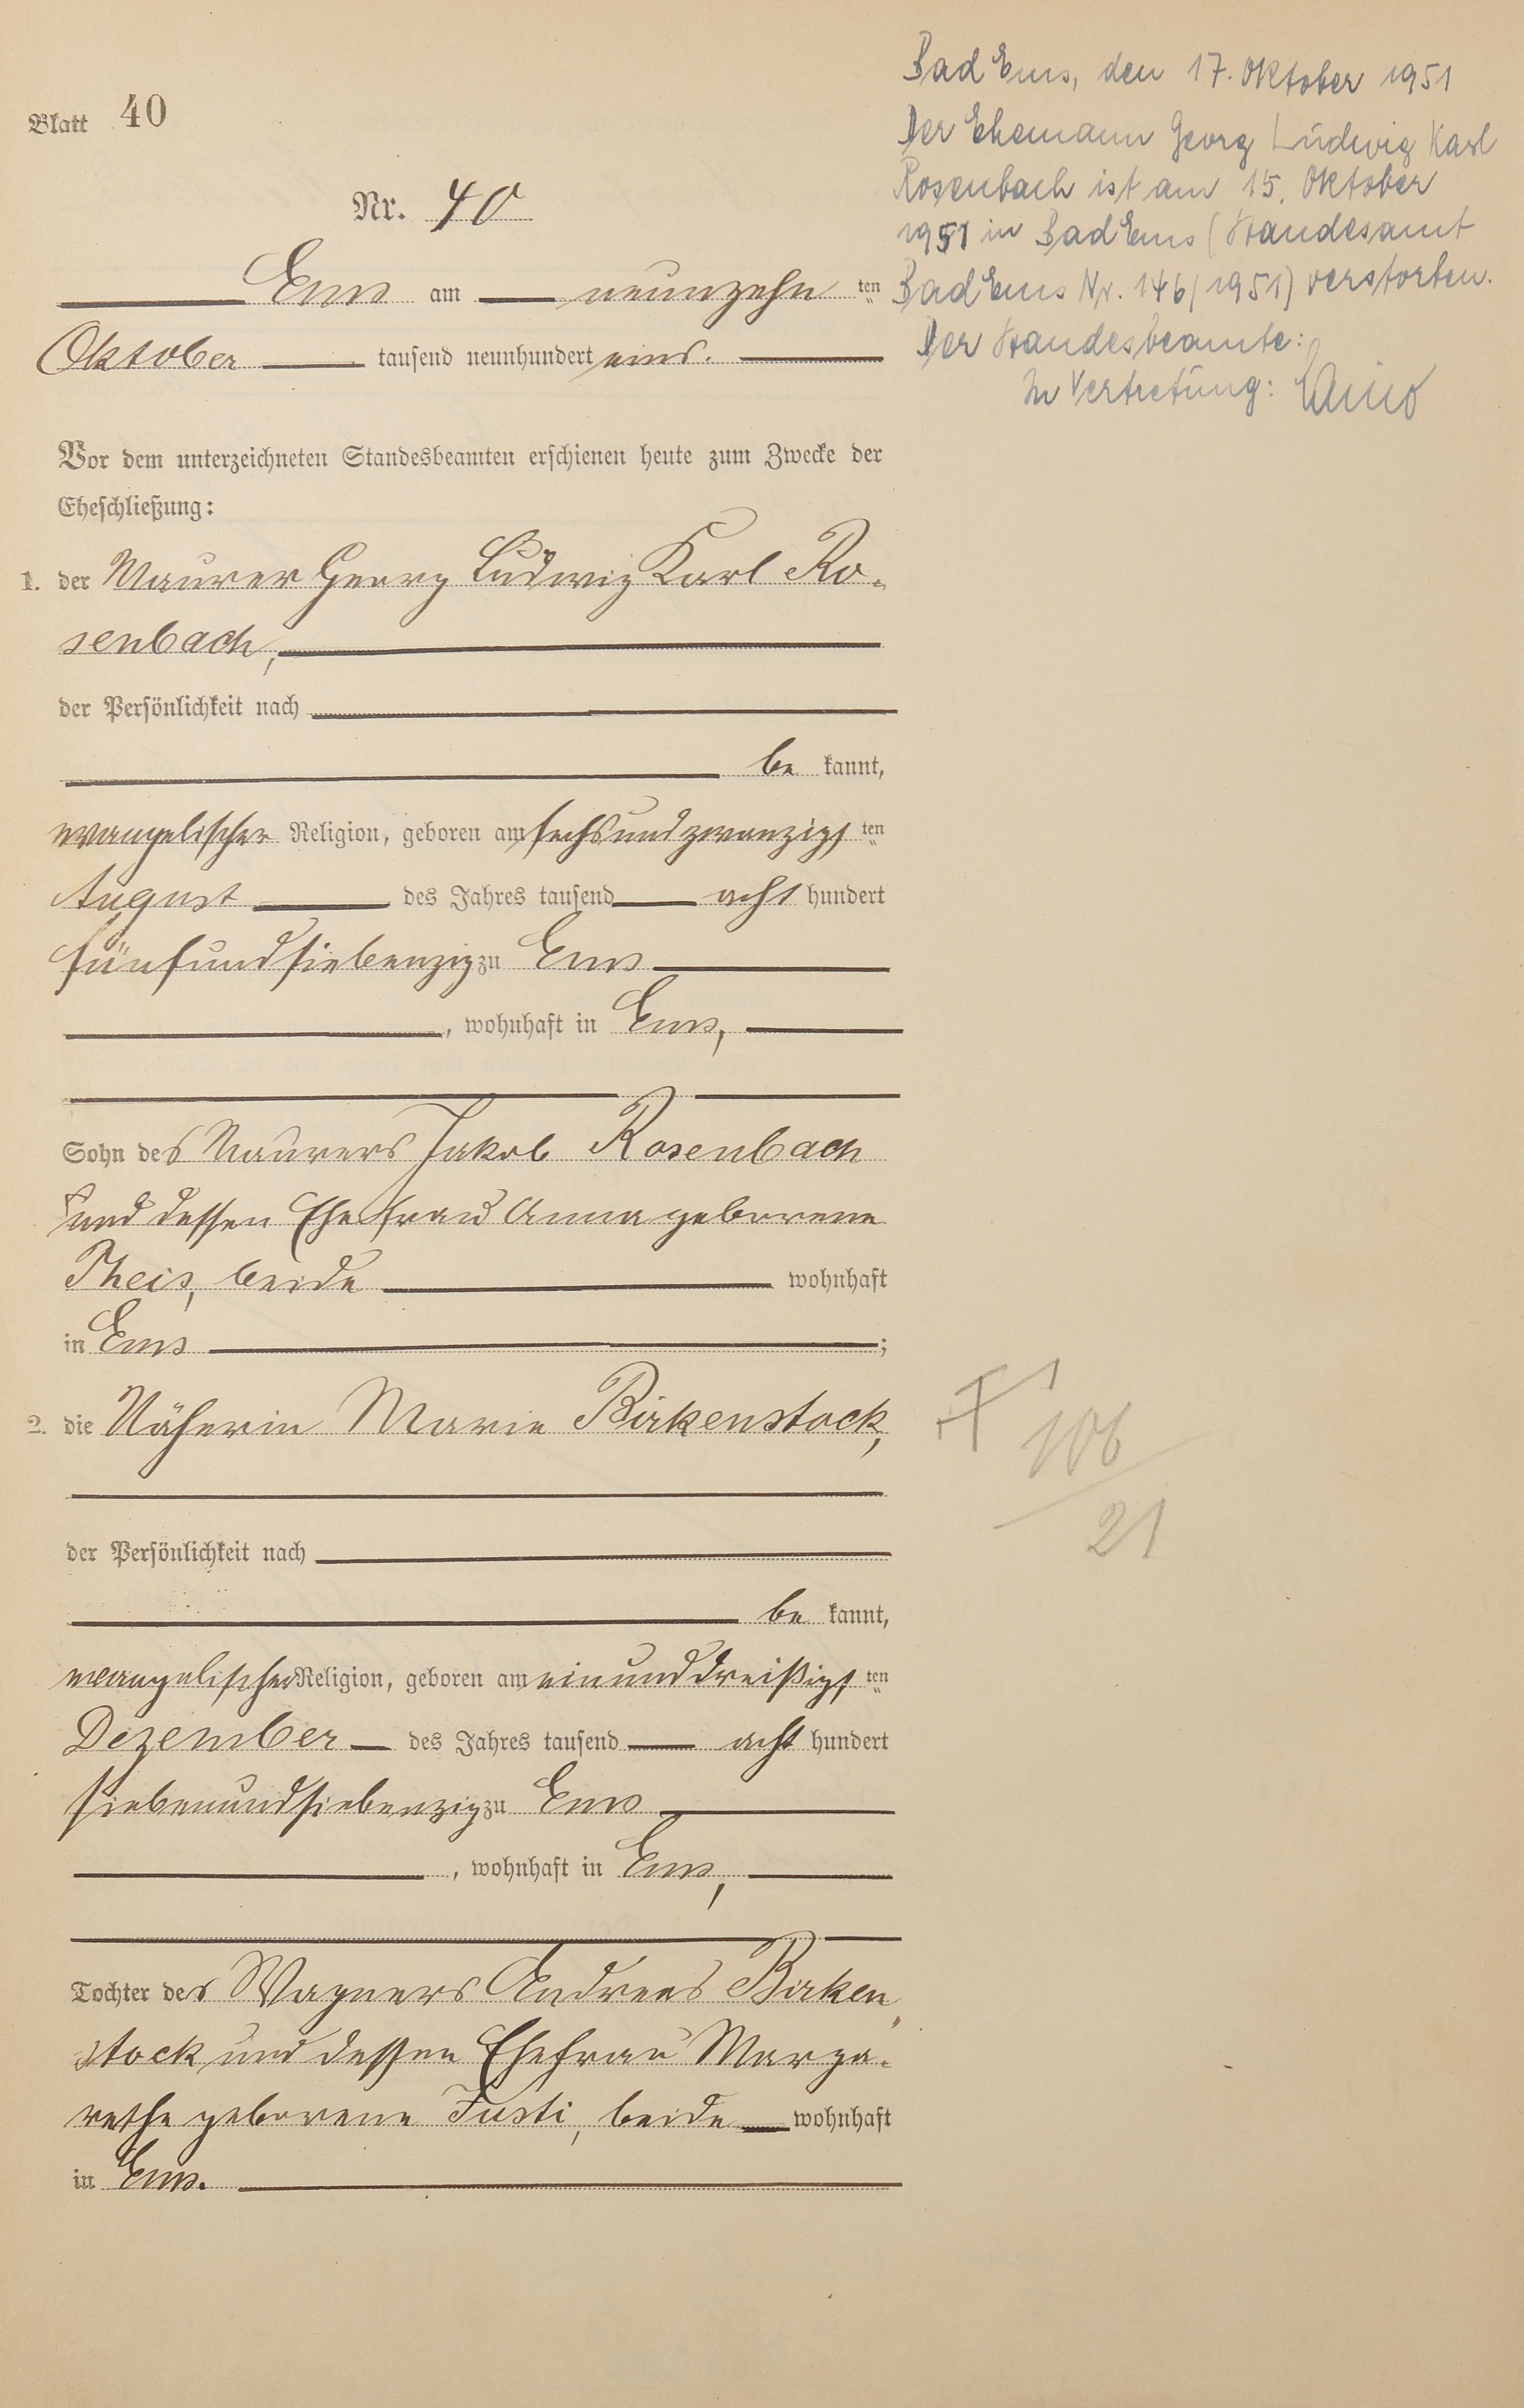 Blatt 40
Nr. 40
Ems am neunzehn ten
Oktober tausend neunhundert eins.
Vor dem unterzeichneten Standesbeamten erschienen heute zum Zwecke der
Eheschließung:
1. der Maurer Georg Ludwig Karl Ro-
senbach,
der Persönlichkeit nach
be kannt,
evangelischer Religion, geboren am sechsundzwanzigsten
August des Jahres tausend acht hundert
fünfundsiebenzig zu Ems
, wohnhaft in Ems,
Sohn des Maurers Jakob Rosenbach
und dessen Ehefrau Anna geborene
Theis, beide wohnhaft
in Ems ;
2. die Näherin Marie Birkenstock,
der Persönlichkeit nach
be kannt,
evangelischer Religion, geboren am einunddreißigsten
Dezember des Jahres tausend acht hundert
siebenundsiebenzig zu Ems
, wohnhaft in Ems,
Tochter des Wagners Andreas Birken„
stock und dessen Ehefrau Marga-
rethe geborene Justi, beide wohnhaft
in Ems.
Bad Ems, den 17. Oktober 1951
Der Ehemann Georg Ludwig Karl
Rosenbach ist am 15. Oktober
1951 in Bad Ems (Standesamt
Bad Ems Nr. 146/1951) verstorben.
Der Standesbeamte:
In Vertretung:
106
21